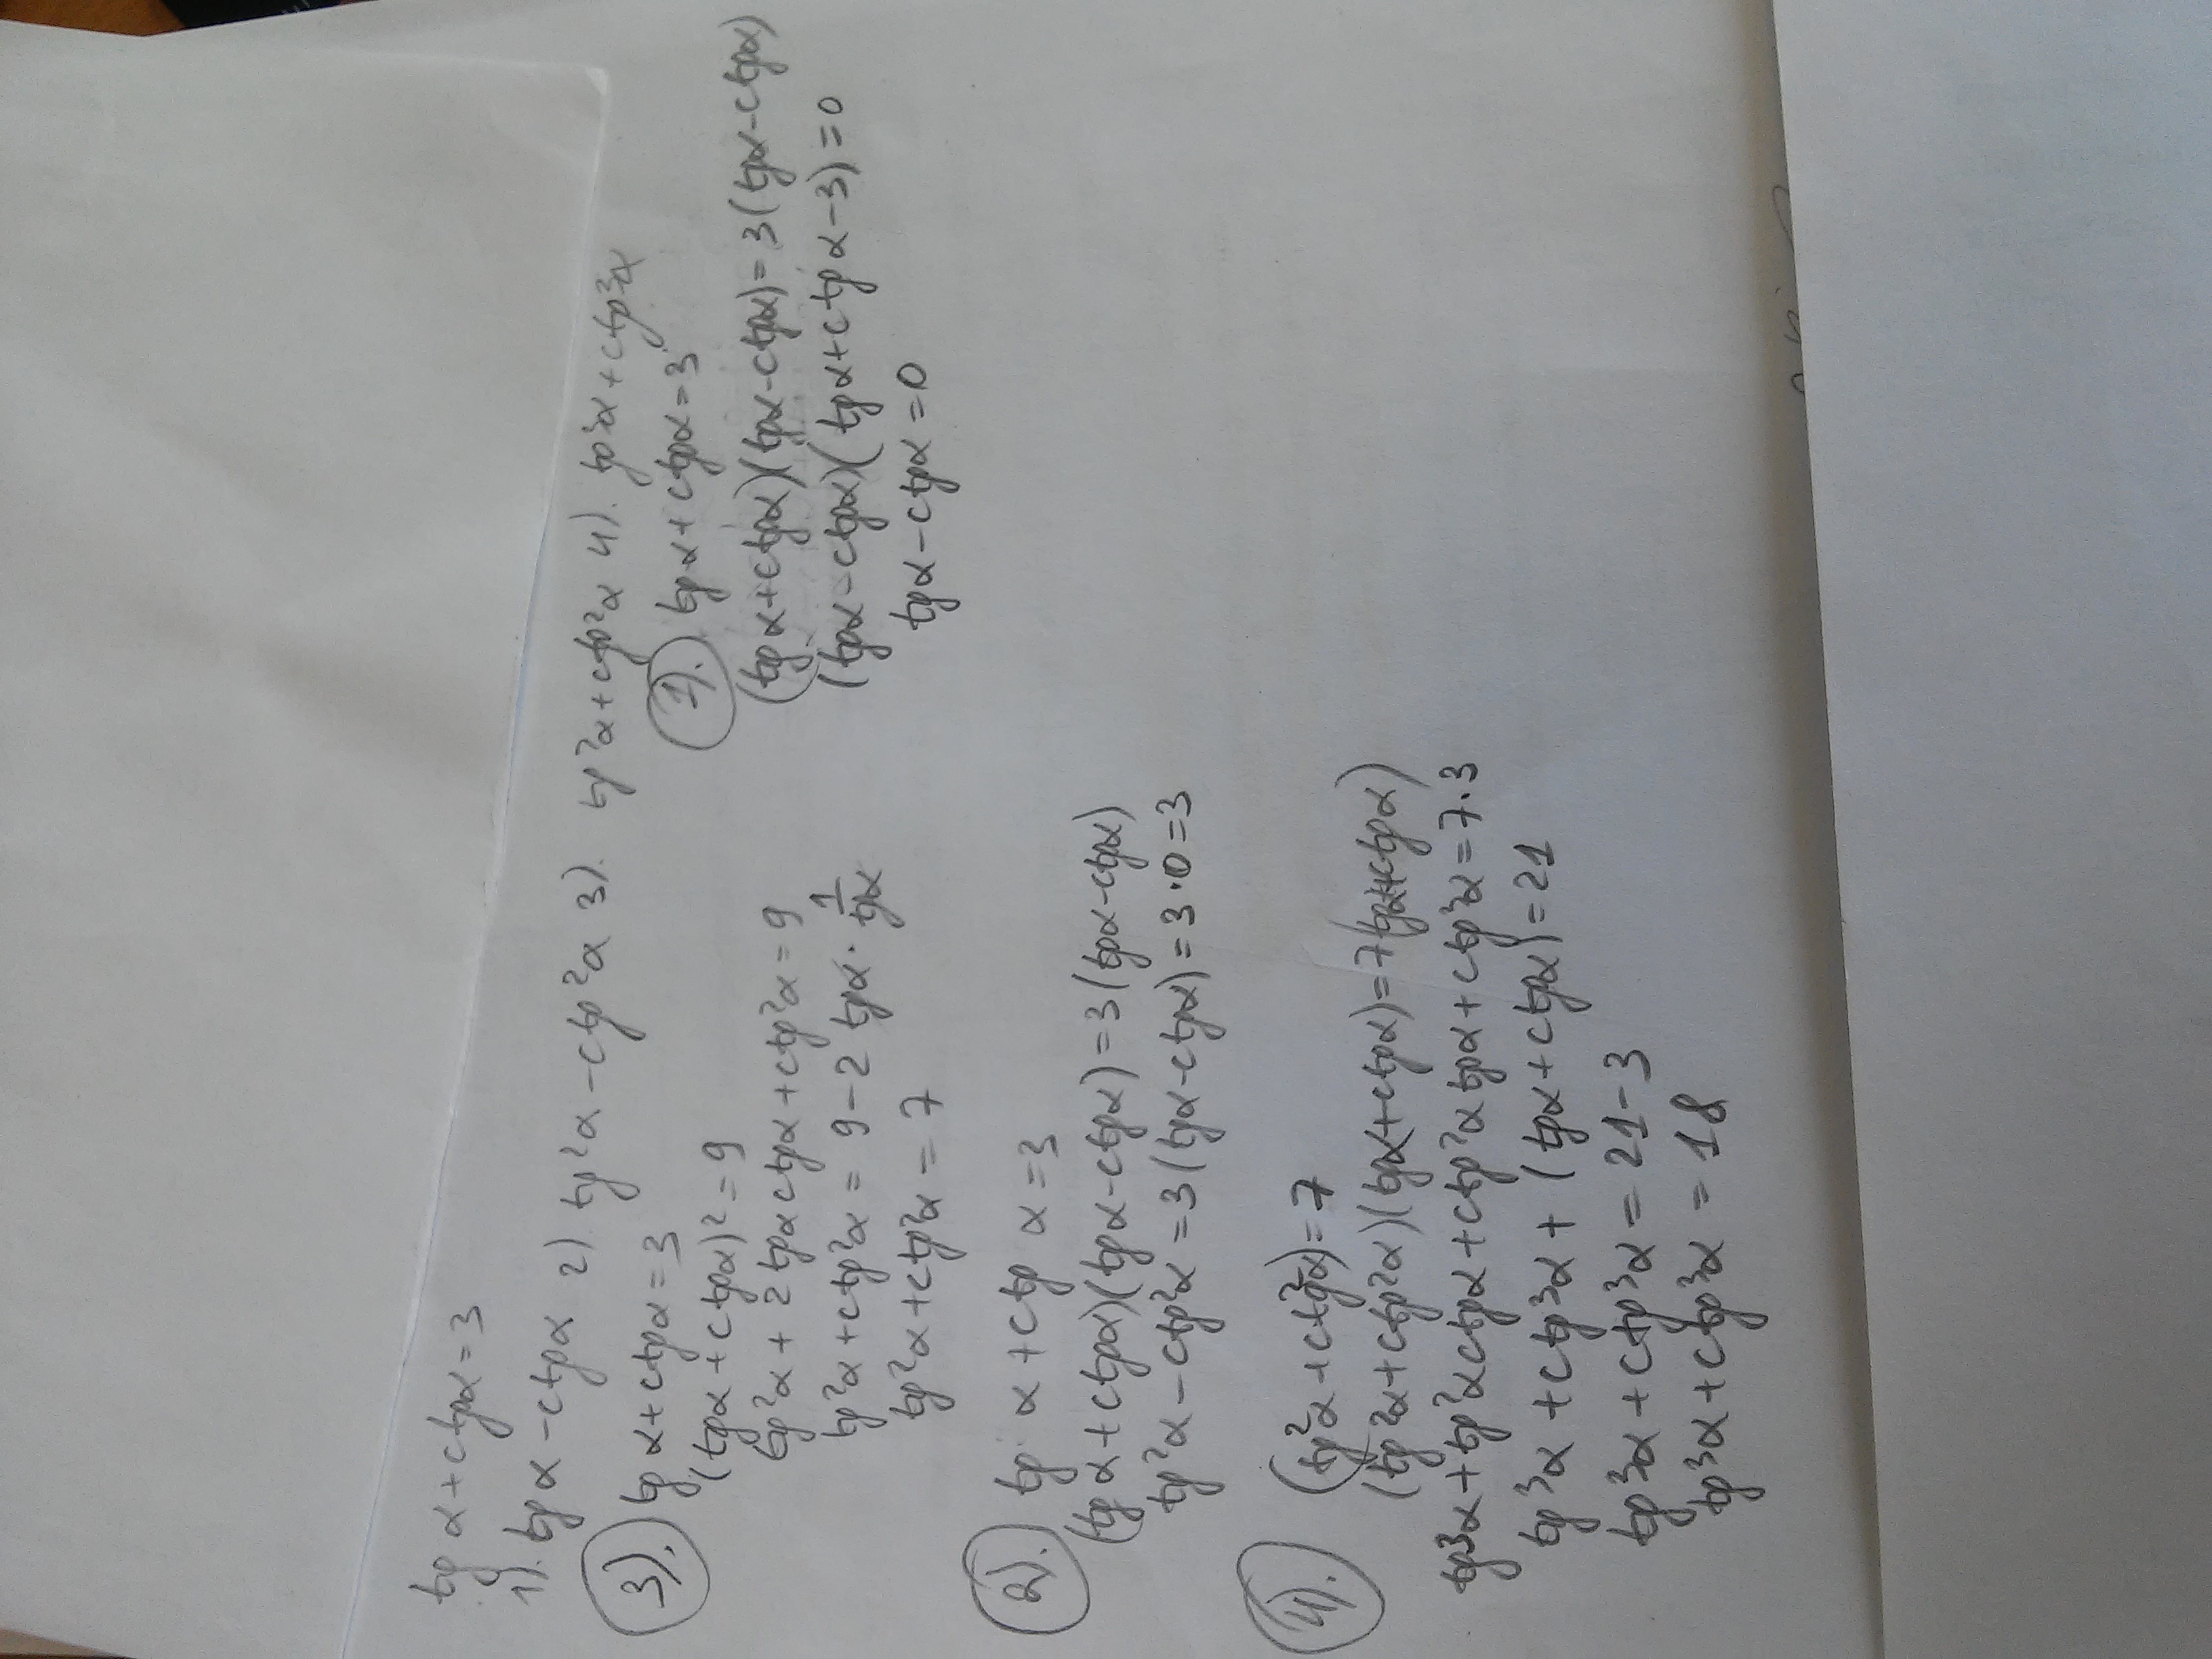 tg α + ctgα = 3
1). tgα - ctgα 2). tg²α - ctg²α 3). tg²α + ctg²α 4). tg³α + ctg³α
3). tgα + ctgα = 3
(tgα + ctgα)² = 9
tg²α + 2 tgα ctgα + ctg²α = 9
tg²α + ctg²α = 9 - 2 tgα · 1/tgα
tg²α + ctg²α = 7
1). tgα + ctgα = 3
(tgα + ctgα)(tgα - ctgα) = 3(tgα - ctgα)
(tgα - ctgα)(tgα + ctgα - 3) = 0
tgα - ctgα = 0
2). tg α + ctg α = 3
(tgα + ctgα)(tgα - ctgα) = 3(tgα - ctgα)
tg²α - ctg²α = 3(tgα - ctgα) = 3·0 = 3
4). (tg²α + ctg²α) = 7
(tg²α + ctg²α)(tgα + ctgα) = 7(tgα + ctgα)
tg³α + tg²α ctgα + ctg²α tgα + ctg³α = 7·3
tg³α + ctg³α + (tgα + ctgα) = 21
tg³α + ctg³α = 21 - 3
tg³α + ctg³α = 18